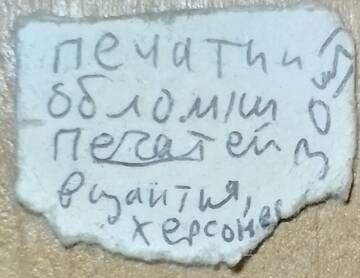 печати и
обломки
печатей
византия,
херсонес